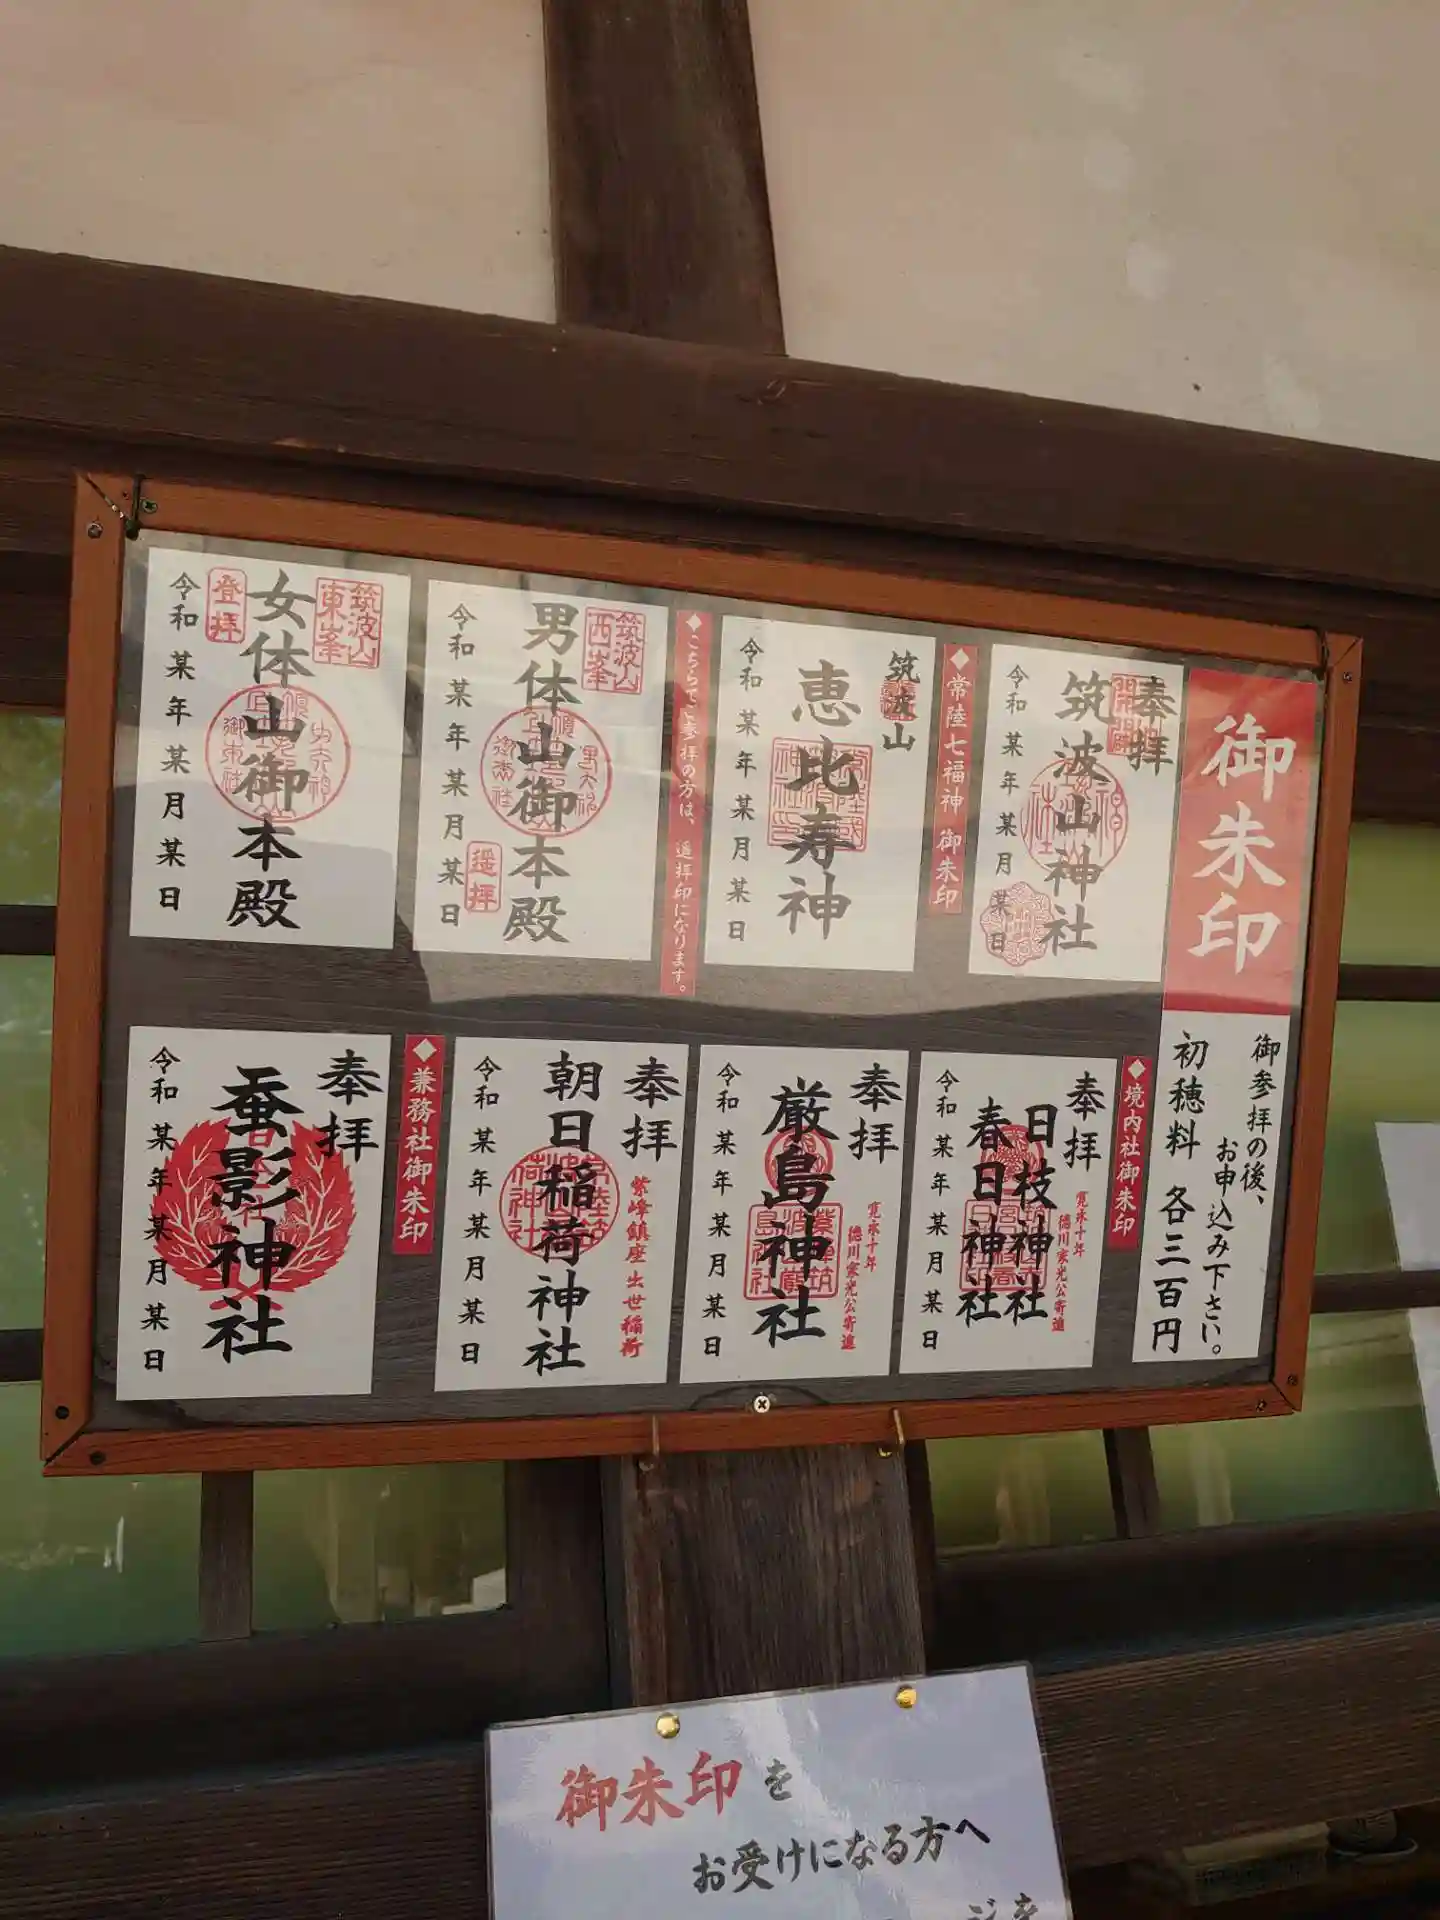 御朱印
御参拝の後、
お申込み下さい。
初穂料 各三百円
奉拝
筑波山神社
令和某年某月某日
◆常陸七福神 御朱印
筑波山
恵比寿神
令和某年某月某日
◆こちらでご参拝の方は、遥拝印になります。
筑波山
西峯
男体山御本殿
遥拝
令和某年某月某日
筑波山
東峯
女体山御本殿
登拝
令和某年某月某日
◆境内社御朱印
奉拝
寛永十年
徳川家光公寄進
日枝神社
春日神社
令和某年某月某日
奉拝
寛永十年
徳川家光公寄進
厳島神社
令和某年某月某日
奉拝
紫峰鎮座 出世稲荷
朝日稲荷神社
令和某年某月某日
◆兼務社御朱印
奉拝
蚕影神社
令和某年某月某日
御朱印を
お受けになる方へ